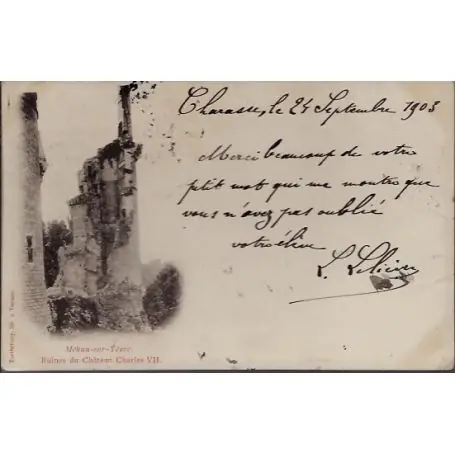 le 24 Septembre 1903
Merci beaucoup de votre
ptit mot qui me montre que
vous n'avez pas oublié
votre élève
Mehun-sur-Yèvre
Ruines du Château Charles VII.